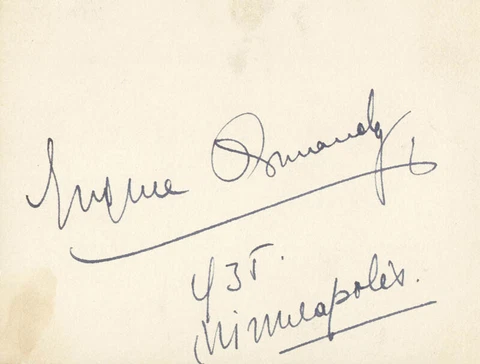 Eugene Ormandy
935.
Minneapolis.